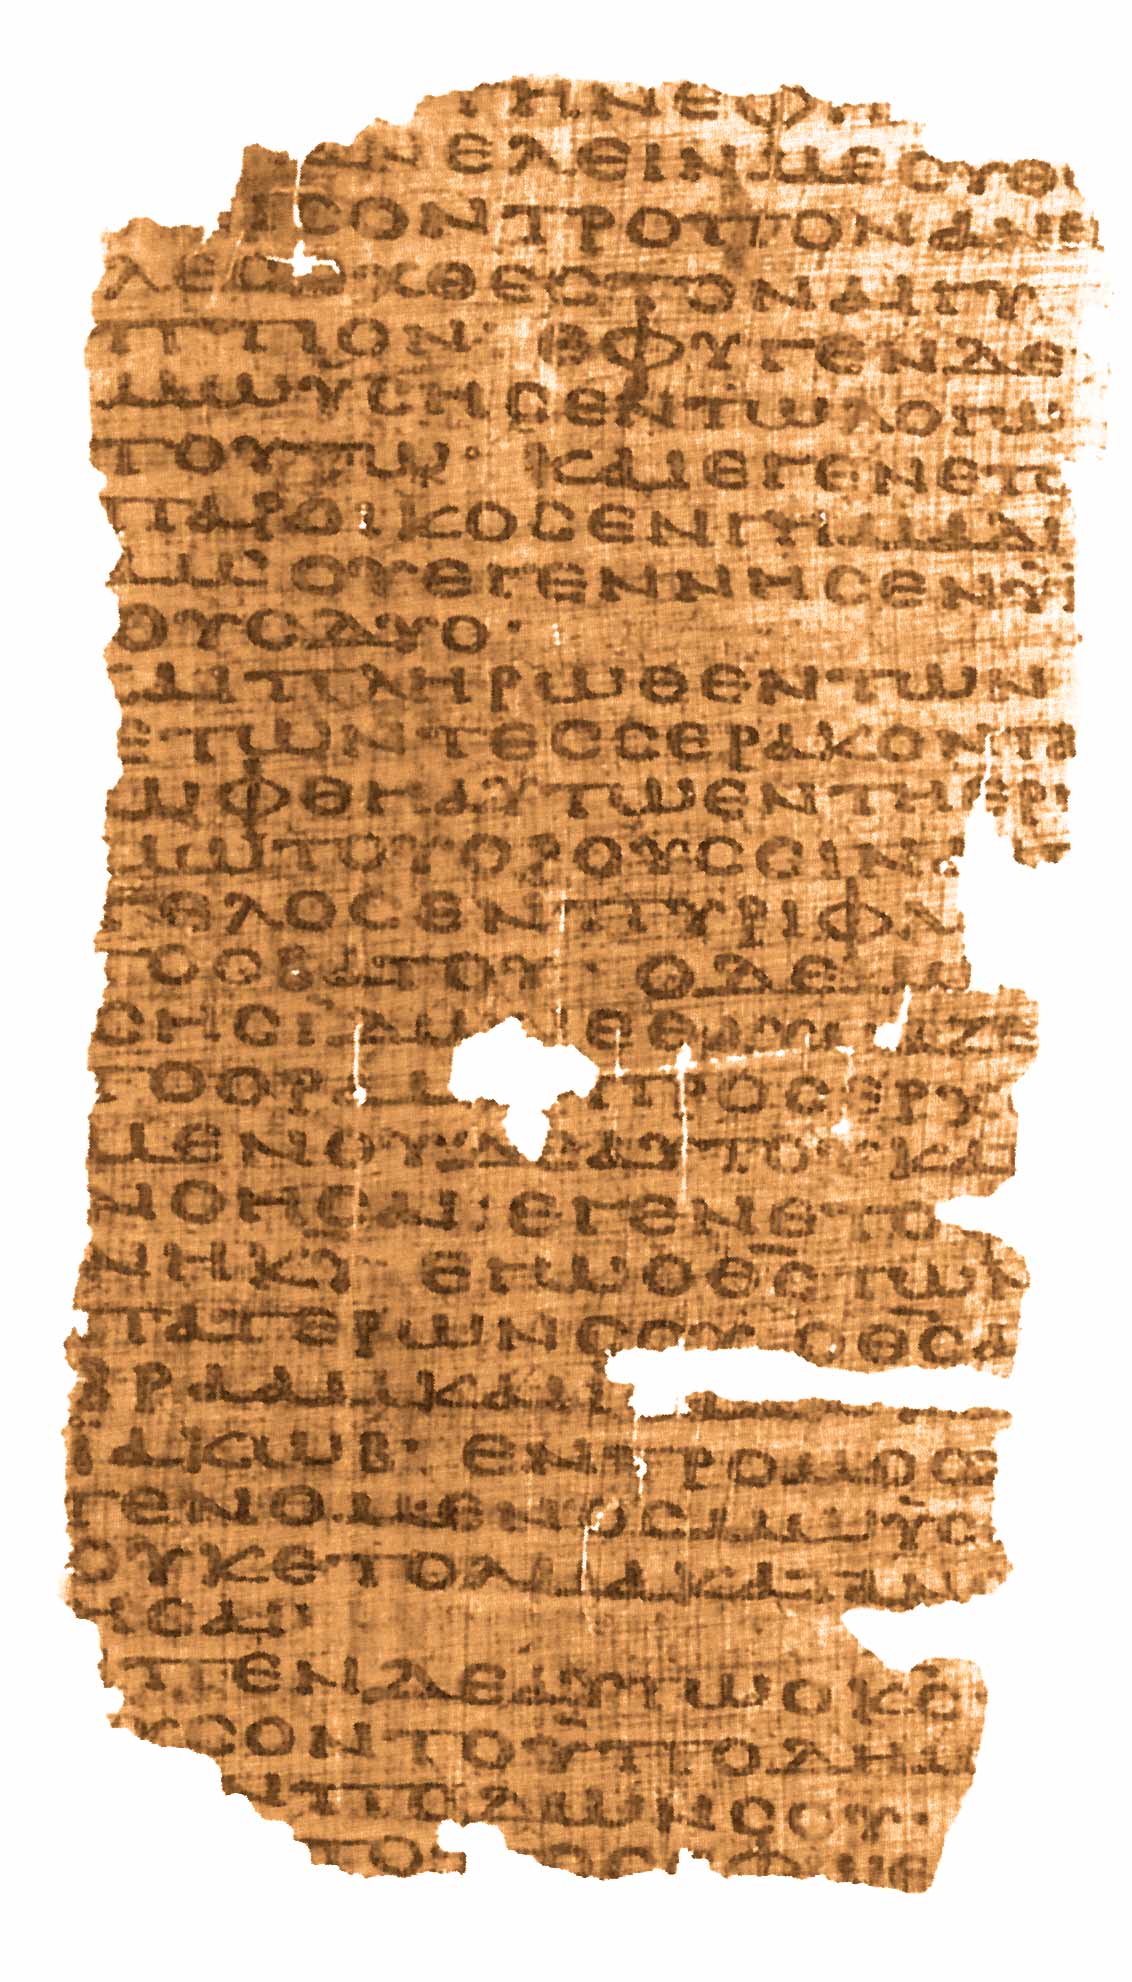 ΤΗΝΕΦΗ
ΑΝΕΛΕΙΝΜΕϹΥΘΕ
ΙϹΟΝΤΡΟΠΟΝΑΝΕΙ
ΛΕϹΕΧΘΕϹΤΟΝΑΙΓΥ
ΠΤΙΟΝ· ΕΦΥΓΕΝΔΕ
ΜΩΥϹΗϹΕΝΤΩΛΟΓΩ
ΤΟΥΤΩ· ΚΑΙΕΓΕΝΕΤ
ΠΑΡΟΙΚΟϹΕΝΓΗΜΑΔΙ
ΑΜ ΟΥΕΓΕΝΝΗϹΕΝΥΙ
ΟΥϹΔΥΟ·
ΚΑΙΠΛΗΡΩΘΕΝΤΩΝ
ΕΤΩΝΤΕϹϹΕΡΑΚΟΝΤΑ
ΩΦΘΗΑΥΤΩΕΝΤΗΕΡΗ
ΜΩΤΟΥΟΡΟΥϹϹΙΝΑ
ΓΕΛΟϹΕΝΠΥΡΙΦΛ
ΓΟϹΒΑΤΟΥ· ΟΔΕΜΩ
ϹΗϹΙΔΩΝΕΘΑΥΜΑΖΕ
ΤΟΟΡΑΜΑΠΡΟϹΕΡΧ
ΜΕΝΟΥΔΕΑΥΤΟΥΚΑ
ΝΟΗϹΑΙ· ΕΓΕΝΕΤΟ
ΝΗΚΥ ΕΓΩΟΘϹΤΩΝ
ΠΑΤΕΡΩΝϹΟΥΟΘϹΑ
ΒΡΑΑΜΚΑΙΙ
ΙΑΚΩΒ· ΕΝΤΡΟΜΟϹ
ΓΕΝΟΜΕΝΟϹΜΩΥϹ
ΟΥΚΕΤΟΛΜΑΚΑΤΑΝ
ΗϹΑΙ
ΠΕΝΔΕΑΥΤΩΟΚϹ
ΥϹΟΝΤΟΥΠΟΔΗΜ
ΩΝΠΟΔΩΝϹΟΥ·
ΤΟΠΟϹΕΦ